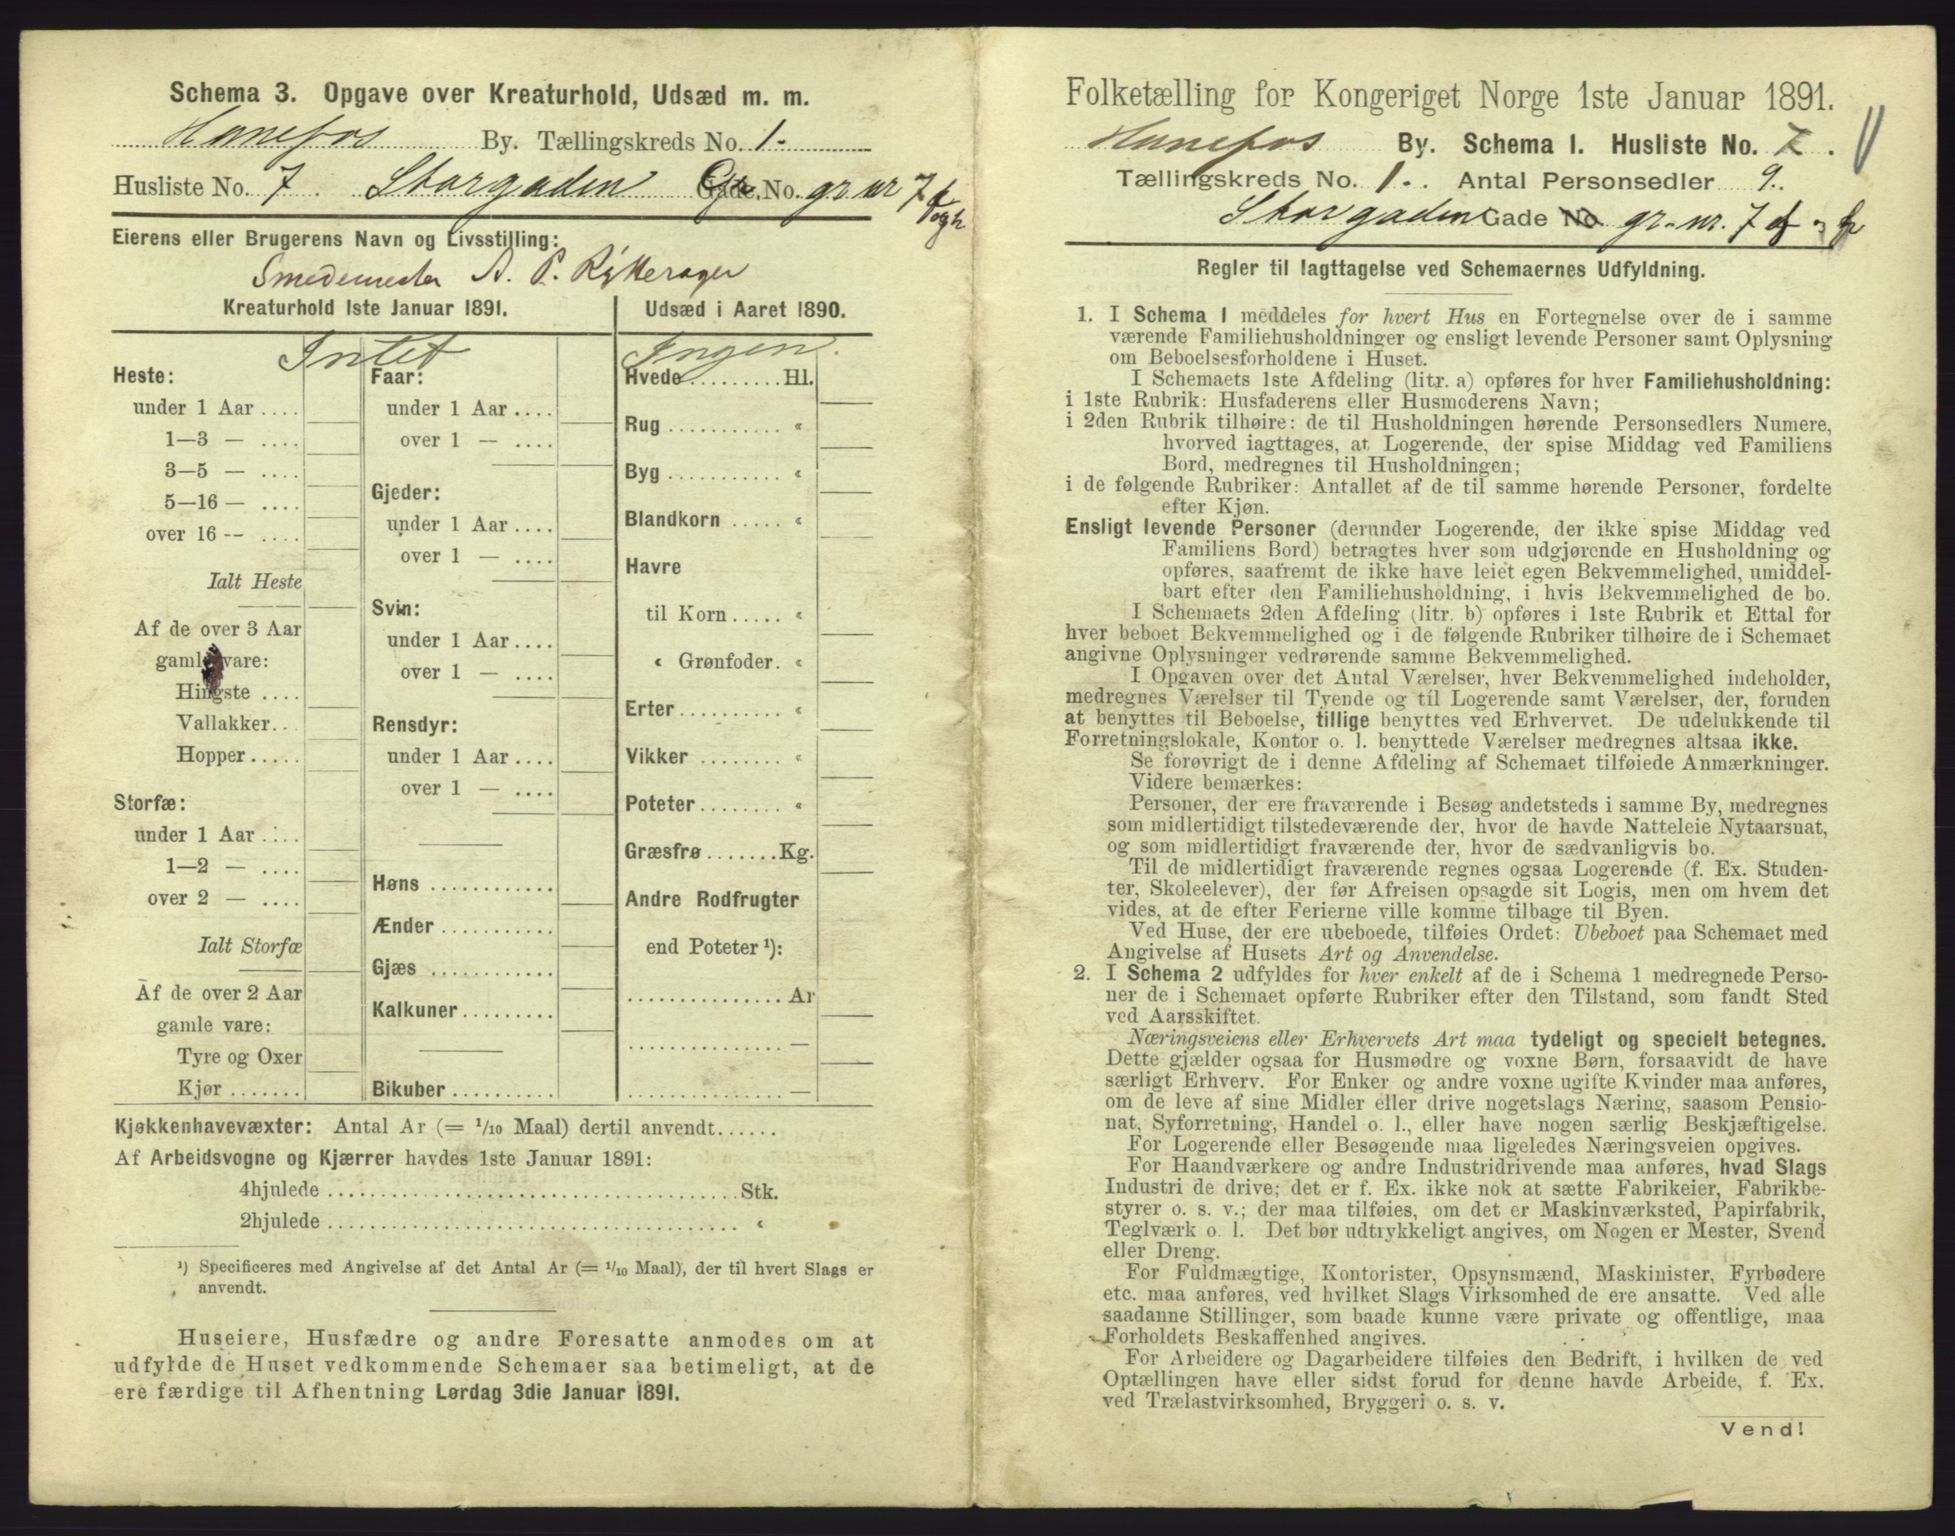 Schema 3. Opgave over Kreaturhold, Udsæd m. m.
Hønefos By. Tællingskreds No. 1.
Husliste No. 7. Storgaden Gade, No. gr nr 7 f og h
Eierens eller Brugerens Navn og Livsstilling:
Smedemester A. P. Rytterager
Kreaturhold 1ste Januar 1891.
Intet
Heste:
under 1 Aar ....
1—3 — ....
3—5 — ....
5—16 — ....
over 16 -- ....
Ialt Heste
Af de over 3 Aar
gamle vare:
Hingste ....
Vallakker...
Hopper.....
Storfæ:
under 1 Aar ....
1—2 — ....
over 2 — ....
Ialt Storfæ
Af de over 2 Aar
gamle vare:
Tyre og Oxer
Kjør .......
Faar:
under 1 Aar ....
over 1 — ....
Gjeder:
under 1 Aar ....
over 1 — ....
Svin:
under 1 Aar ....
over 1 — ....
Rensdyr:
under 1 Aar ....
over 1 — ....
Høns ............
Ænder ...........
Gjæs ............
Kalkuner.........
Bikuber ..........
Udsæd i Aaret 1890.
Ingen.
Hvede .........Hl.
Rug ........... «
Byg ........... «
Blandkorn ..... «
Havre
til Korn ..... «
« Grønfoder. «
Erter.......... «
Vikker ........ «
Poteter........ «
Græsfrø .......Kg.
Andre Rodfrugter
end Poteter ¹):
...............Ar
............... —
............... —
Kjøkkenhavevæxter: Antal Ar (= 1/10 Maal) dertil anvendt......
Af Arbeidsvogne og Kjærrer havdes 1ste Januar 1891:
4hjulede .......................................Stk.
2hjulede ....................................... «
¹) Specificeres med Angivelse af det Antal Ar (= 1/10 Maal), der til hvert Slags er
anvendt.
Huseiere, Husfædre og andre Foresatte anmodes om at
udfylde de Huset vedkommende Schemaer saa betimeligt, at de
ere færdige til Afhentning Lørdag 3die Januar 1891.
Folketælling for Kongeriget Norge 1ste Januar 1891.
Hønefos By. Schema I. Husliste No. 7.
Tællingskreds No. 1. Antal Personsedler 9.
Storgaden Gade No gr. nr. 7 f
Regler til Iagttagelse ved Schemaernes Udfyldning.
1. I Schema I meddeles for hvert Hus en Fortegnelse over de i samme
værende Familiehusholdninger og ensligt levende Personer samt Oplysning
om Beboelsesforholdene i Huset.
I Schemaets 1ste Afdeling (litr. a) opføres for hver Familiehusholdning:
i 1ste Rubrik: Husfaderens eller Husmoderens Navn;
i 2den Rubrik tilhøire: de til Husholdningen hørende Personsedlers Numere,
hvorved iagttages, at Logerende, der spise Middag ved Familiens
Bord, medregnes til Husholdningen;
i de følgende Rubriker: Antallet af de til samme hørende Personer, fordelte
efter Kjøn.
Ensligt levende Personer (derunder Logerende, der ikke spise Middag ved
Familiens Bord) betragtes hver som udgjørende en Husholdning og
opføres, saafremt de ikke have leiet egen Bekvemmelighed, umiddel-
bart efter den Familiehusholdning, i hvis Bekvemmelighed de bo.
I Schemaets 2den Afdeling (litr. b) opføres i 1ste Rubrik et Ettal for
hver beboet Bekvemmelighed og i de følgende Rubriker tilhøire de i Schemaet
angivne Oplysninger vedrørende samme Bekvemmelighed.
I Opgaven over det Antal Værelser, hver Bekvemmelighed indeholder,
medregnes Værelser til Tyende og til Logerende samt Værelser, der, foruden
at benyttes til Beboelse, tillige benyttes ved Erhvervet. De udelukkende til
Forretningslokale, Kontor o. l. benyttede Værelser medregnes altsaa ikke.
Se forøvrigt de i denne Afdeling af Schemaet tilføiede Anmærkninger.
Videre bemærkes:
Personer, der ere fraværende i Besøg andetsteds i samme By, medregnes
som midlertidigt tilstedeværende der, hvor de havde Natteleie Nytaarsnat,
og som midlertidigt fraværende der, hvor de sædvanligvis bo.
Til de midlertidigt fraværende regnes ogsaa Logerende (f. Ex. Studen-
ter, Skoleelever), der før Afreisen opsagde sit Logis, men om hvem det
vides, at de efter Ferierne ville komme tilbage til Byen.
Ved Huse, der ere ubeboede, tilføies Ordet: Ubeboet paa Schemaet med
Angivelse af Husets Art og Anvendelse.
2. I Schema 2 udfyldes for hver enkelt af de i Schema 1 medregnede Perso-
ner de i Schemaet opførte Rubriker efter den Tilstand, som fandt Sted
ved Aarsskiftet.
Næringsveiens eller Erhvervets Art maa tydeligt og specielt betegnes.
Dette gjælder ogsaa for Husmødre og voxne Børn, forsaavidt de have
særligt Erhverv. For Enker og andre voxne ugifte Kvinder maa anføres,
om de leve af sine Midler eller drive nogetslags Næring, saasom Pensio-
nat, Syforretning, Handel o. l., eller have nogen særlig Beskjæftigelse.
For Logerende eller Besøgende maa ligeledes Næringsveien opgives.
For Haandværkere og andre Industridrivende maa anføres, hvad Slags
Industri de drive; det er f. Ex. ikke nok at sætte Fabrikeier, Fabrikbe-
styrer o. s. v.; der maa tilføies, om det er Maskinværksted, Papirfabrik,
Teglværk o. l. Det bør udtrykkeligt angives, om Nogen er Mester, Svend
eller Dreng.
For Fuldmægtige, Kontorister, Opsynsmænd, Maskinister, Fyrbødere
etc. maa anføres, ved hvilket Slags Virksomhed de ere ansatte. Ved alle
saadanne Stillinger, som baade kunne være private og offentlige, maa
Forholdets Beskaffenhed angives.
For Arbeidere og Dagarbeidere tilføies den Bedrift, i hvilken de ved
Optællingen have eller sidst forud for denne havde Arbeide, f. Ex.
ved Trælastvirksomhed, Bryggeri o. s. v.
Vend!